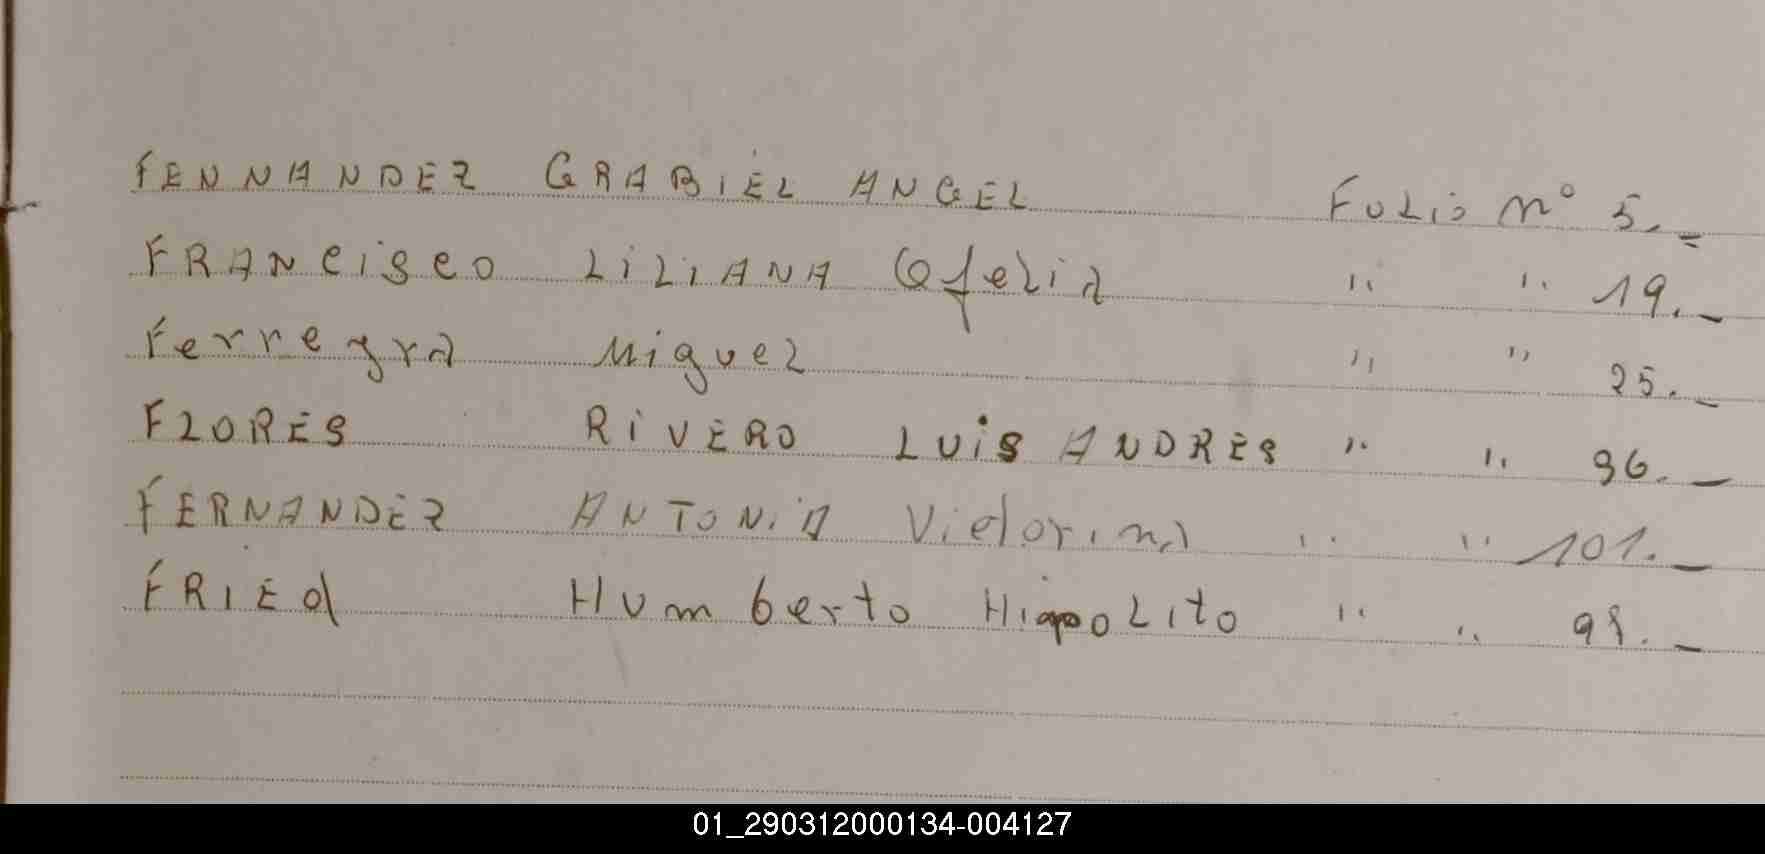 FENNANDEZ GRABIEL ANGEL FOLIO Nº 5._
FRANCISCO LILIANA Ofelia " " 19._
Ferreyra Miguel " " 25._
FLORES RIVERO LUIS ANDRES " " 96._
FERNANDEZ ANTONIA Victorina " " 101._
FRIEd Humberto HipoLito " " 98._
01_290312000134-004127